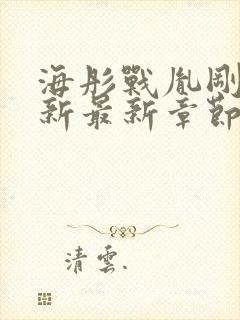 海彤戰胤剛
新最新章節
清雲.